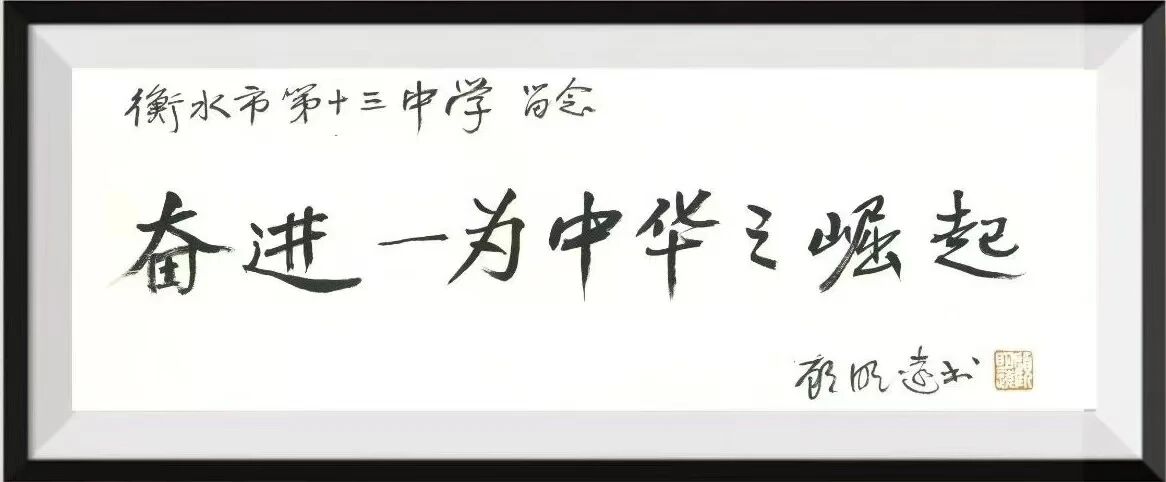 衡水市第十三中学 留念
奋进—为中华之崛起
顾明远书